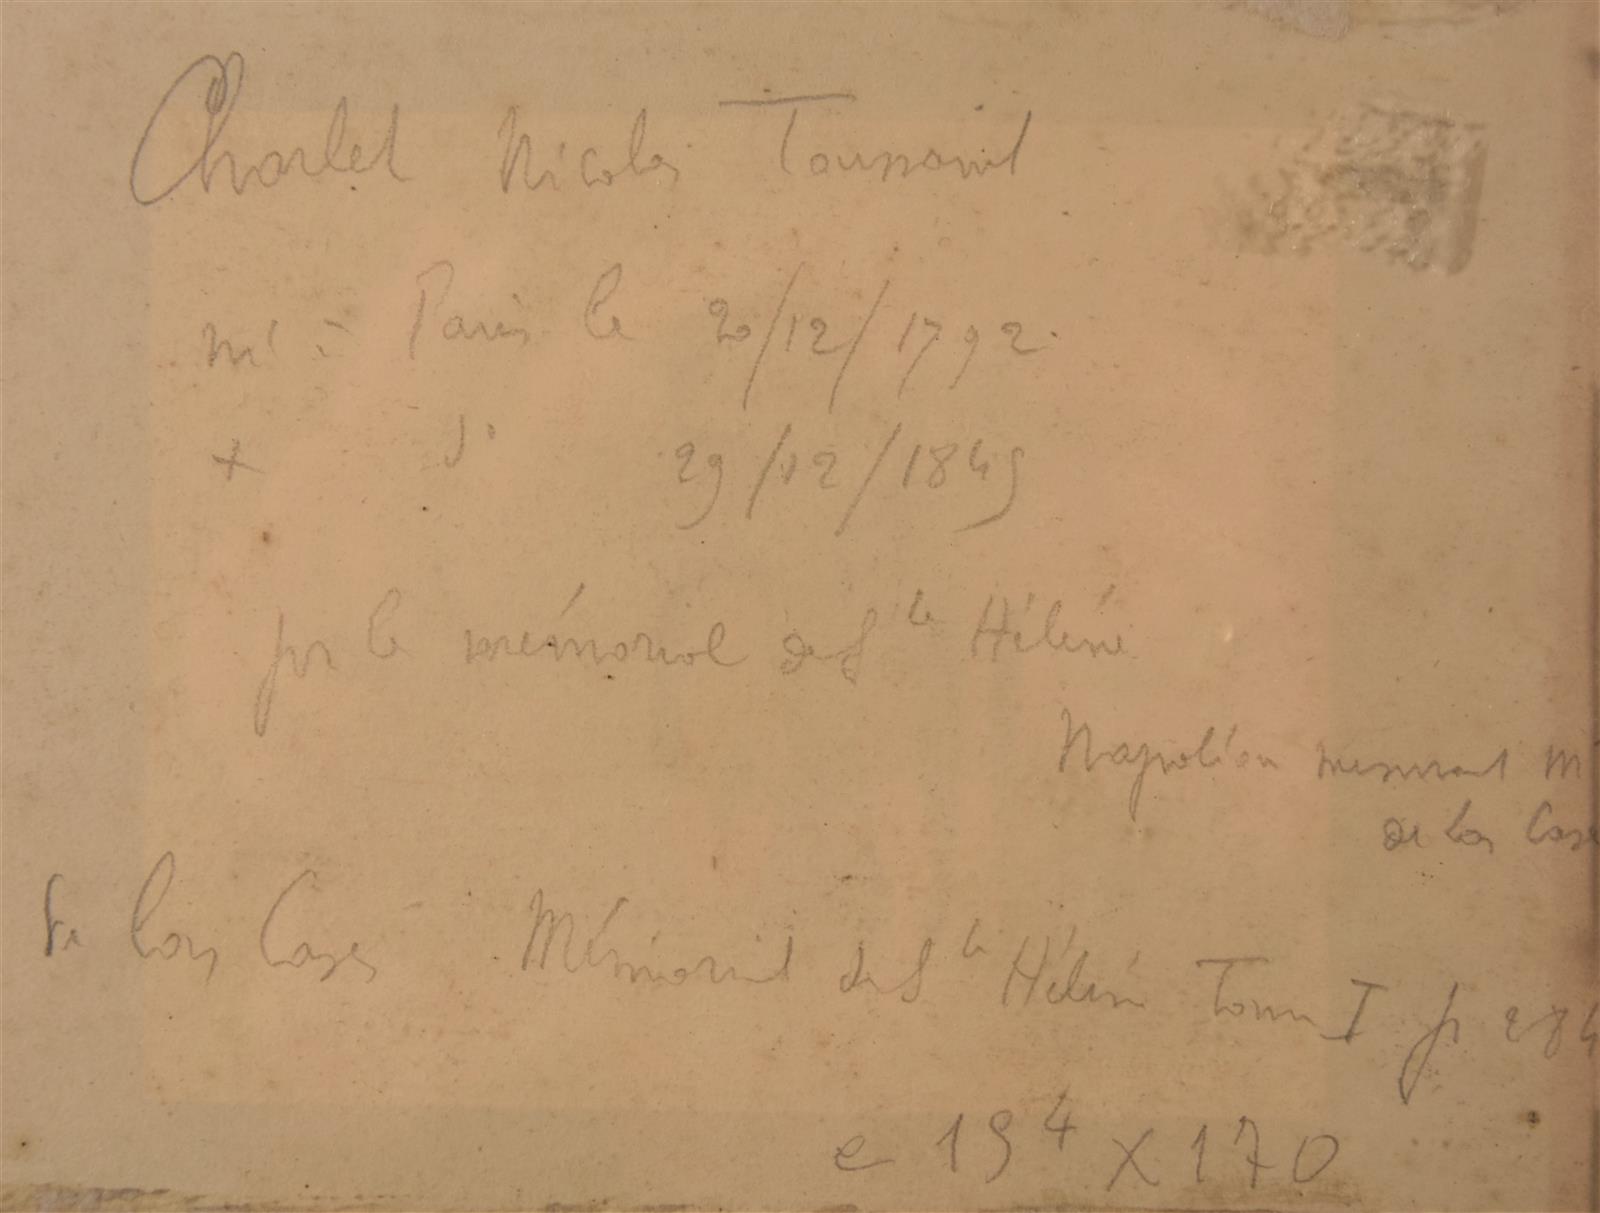 Charlet Nicolas Toussaint
né à Paris le 20/12/1792.
+ d° 29/12/1845
pr le mémorial de Ste Hélène
Napoléon mesurant M
de Las Case
de Las Cases Mémorial de Ste Hélène Tome I p 284
e 194 X 170